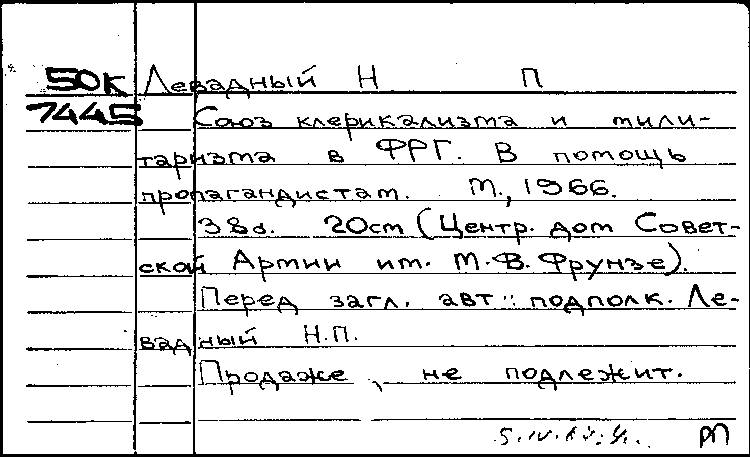 50К Левадный Н П
7445 Союз клерикализма и мили-
таризма в ФРГ. В помощь
пропагандистам. М., 1966.
38с. 20см (Центр. дом Совет-
ской Армии им. М.В. Фрунзе).
Перед загл. авт.: подполк. Ле-
вадный Н.П.
Продаже, не подлежит.